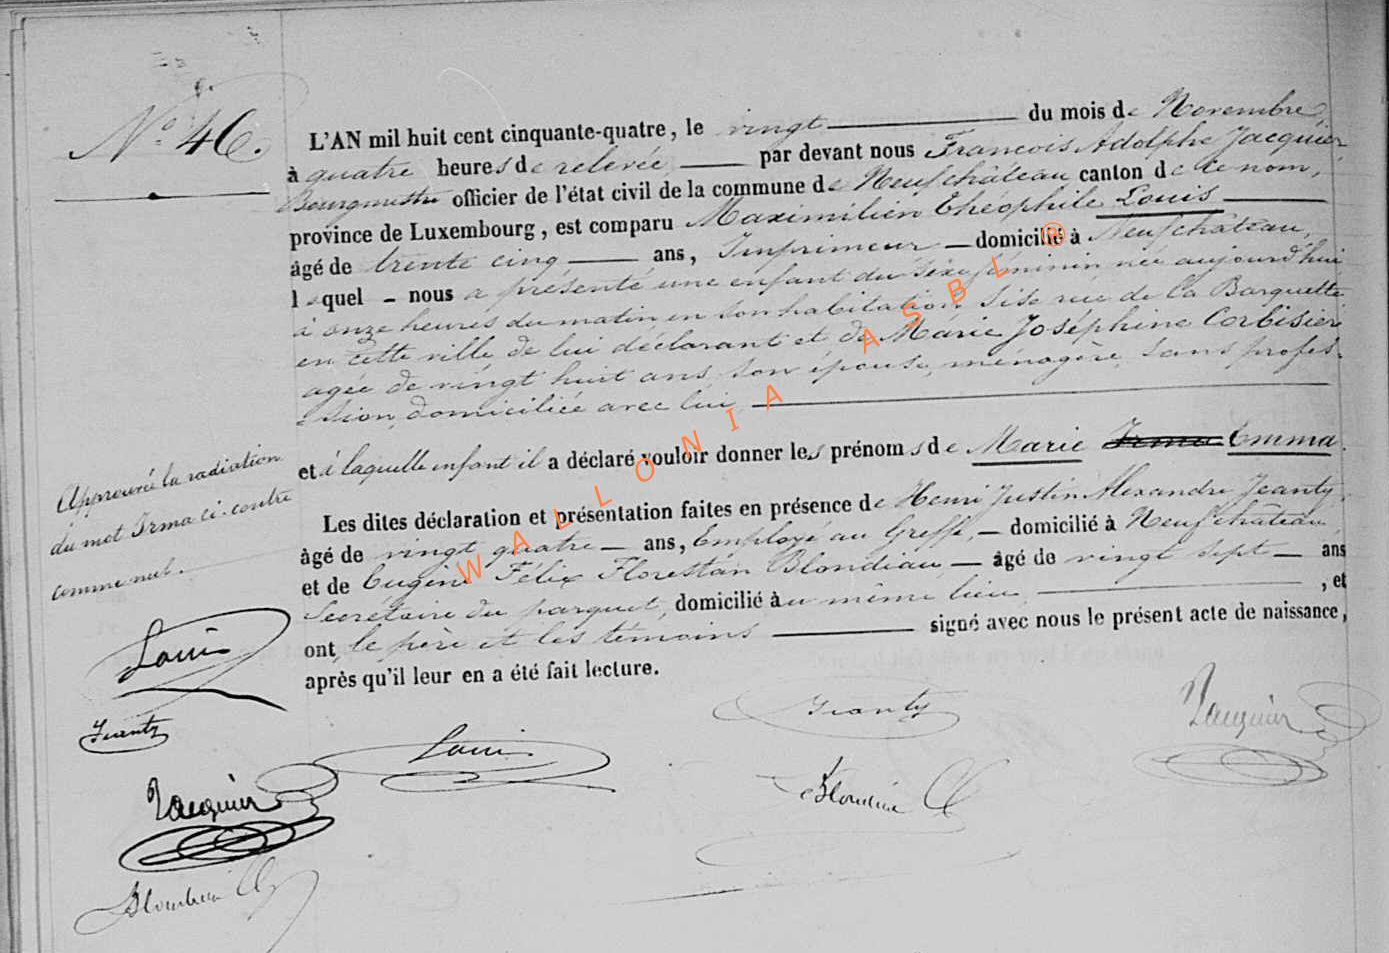 N° 46.
L'AN mil huit cent cinquante-quatre, le vingt du mois de Novembre,
à quatre heures de relevée, par devant nous François Adolphe Jacquier
Bourgmestre officier de l'état civil de la commune de Neufchâteau canton de ce nom,
province de Luxembourg, est comparu Maximilien Théophile Louis
âgé de trente cinq ans, Imprimeur domicilié à Neufchâteau,
lequel nous a présenté une enfant du sèxe féminin née aujourd'hui
à onze heures du matin en son habitation sise rue de la Barquette
en cette ville de lui déclarant et de Marie Joséphine Corbisier
agée de vingt huit ans, son épouse, ménagère, sans profes-
sion, domiciliée avec lui,
et à laquelle enfant il a déclaré vouloir donner les prénoms de Marie Irma Emma.
Approuvé la radiation
du mot Irma ci-contre
comme nul.
Les dites déclaration et présentation faites en présence de Henri Justin Alexandre Jeanty,
âgé de vingt quatre ans, Employé au Greffe, domicilié à Neufchâteau,
et de Eugène Félix Florestan Blondiau âgé de vingt sept ans
Secrétaire du parquet, domicilié au même lieu, , et
ont, le père et les témoins signé avec nous le présent acte de naissance,
après qu'il leur en a été fait lecture.
Louis
Jeanty
Jacquier
Blondiau
Louis
Jeanty
Blondiau
Jacquier
WALLONIA ASBL ®